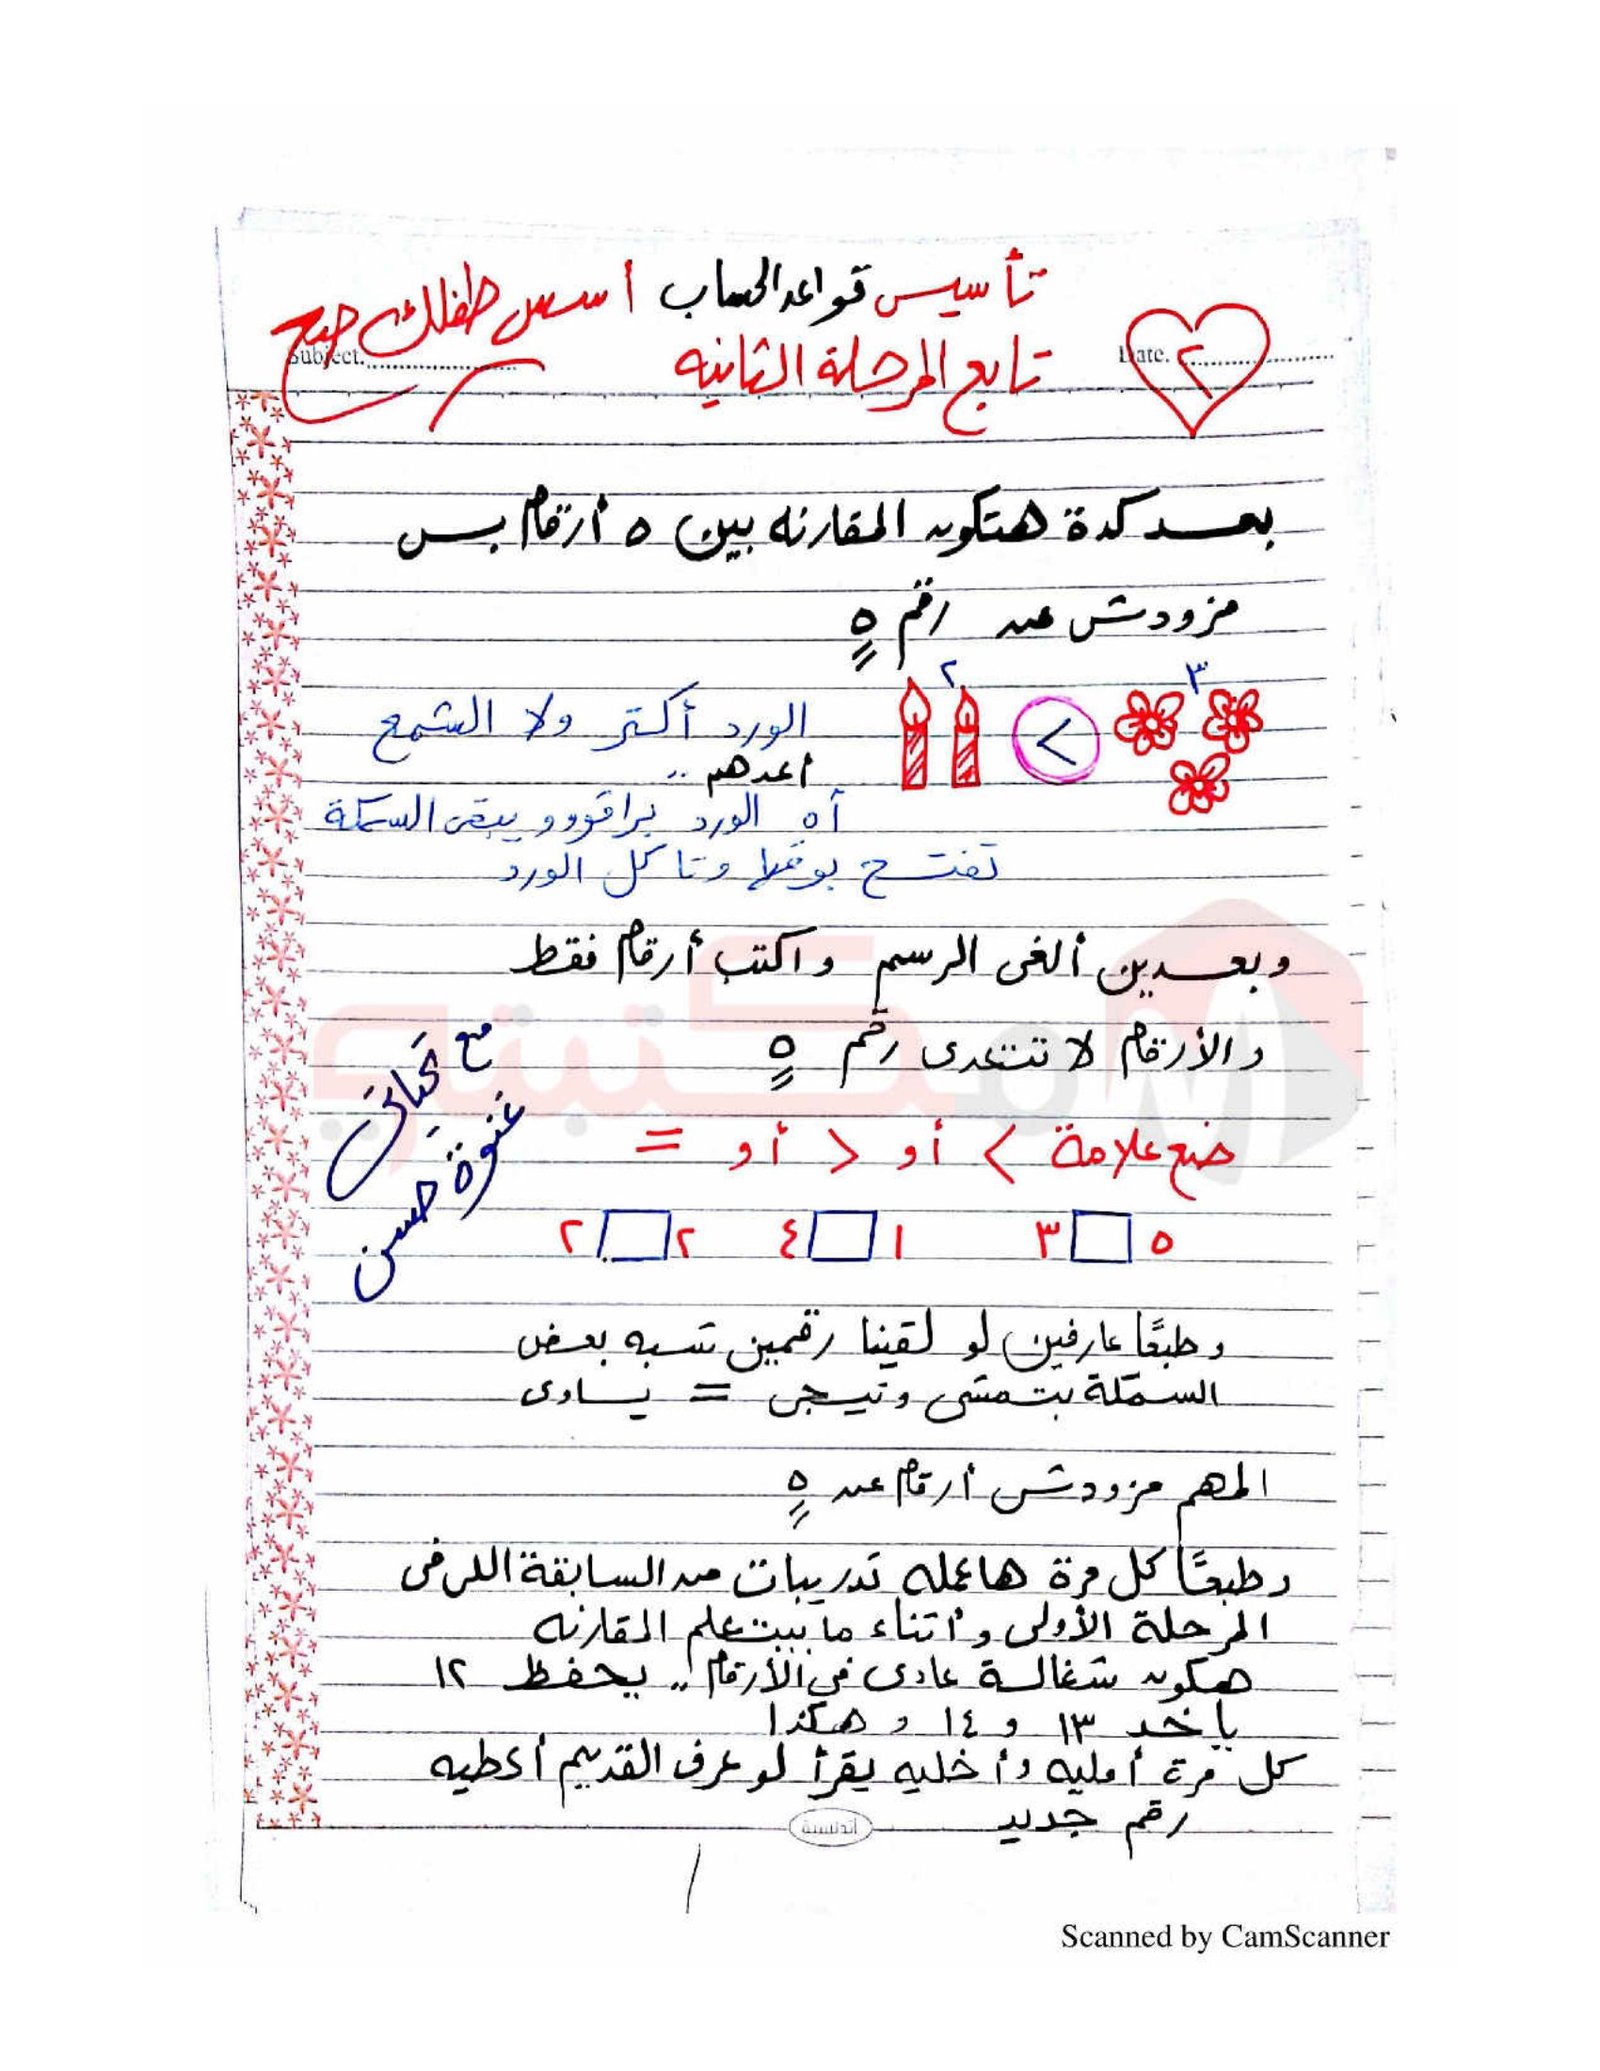 تأسيس قواعد الحساب أسس طفلك صح
Subject.
Date.
٢
تابع المرحلة الثانيه
بعد كدة هتكون المقارنه بين ٥ أرقام بس
مزودش عن رقم ٥
٣ ٢
> الورد أكتر ولا الشمع
أعدهم ..
أه الورد براڤوو و يبقى السمكة
تفتح بوقها وتاكل الورد
وبعدين ألغى الرسم واكتب أرقام فقط
والأرقام لا تتعدى رقم ٥
مع تحياتى
غنوة حسن
ضع علامة < أو > أو =
٥ ٣ ١ ٤ ٢ ٢
وطبعًا عارفين لو لقينا رقمين شبه بعض
السمكة بتمشى وتيجى = يساوى
المهم مزودش أرقام عن ٥
وطبعًا كل مرة هاعمله تدريبات من السابقة اللى فى
المرحلة الأولى وأثناء ما بيتعلم المقارنه
هكون شغالة عادى في الأرقام .. يحفظ ١٢
ياخد ١٣ و ١٤ و هكذا
كل مرة أمليه وأخليه يقرأ لو عرف القديم أعطيه
رقم جديد
أندلسية
مكتبتي
Scanned by CamScanner